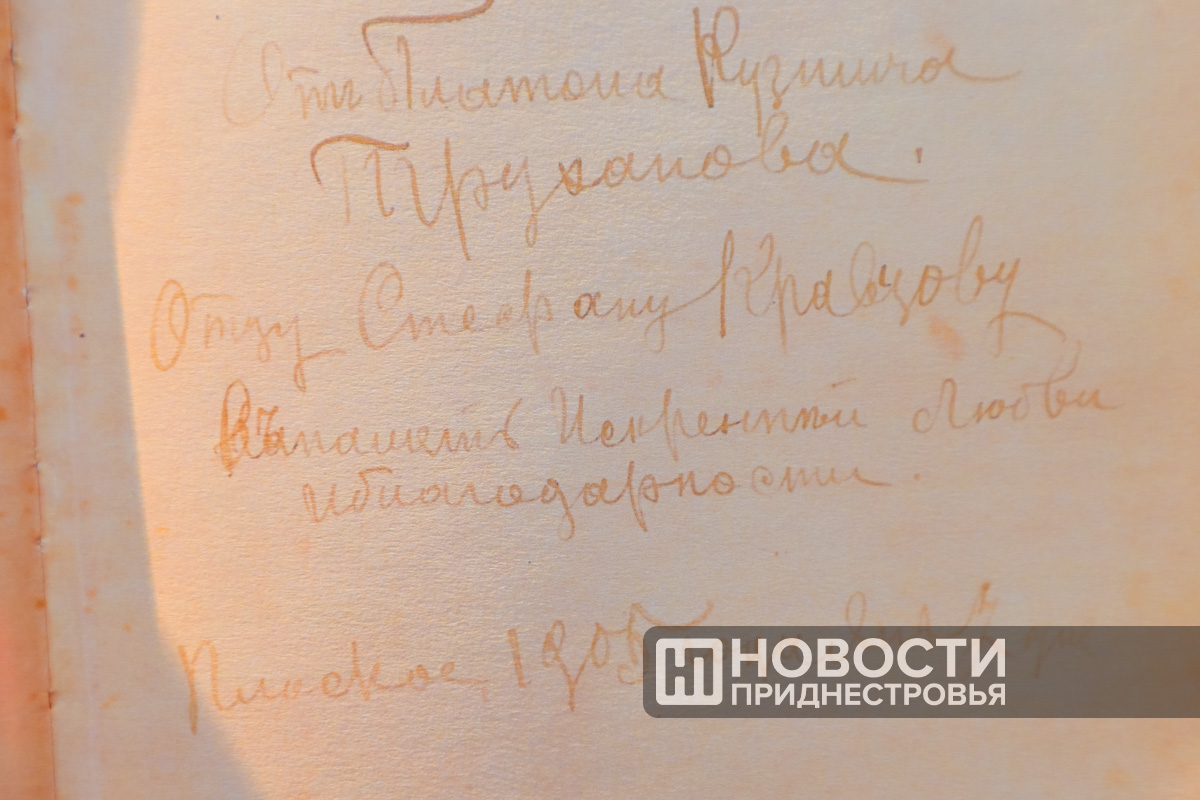 Отъ Платона Кузмича
Труханова.
Отцу Стефану Кравцову
Въпамять Искренней Любви
иблагодарности.
Плоское, 1905
НОВОСТИ
ПРИДНЕСТРОВЬЯ